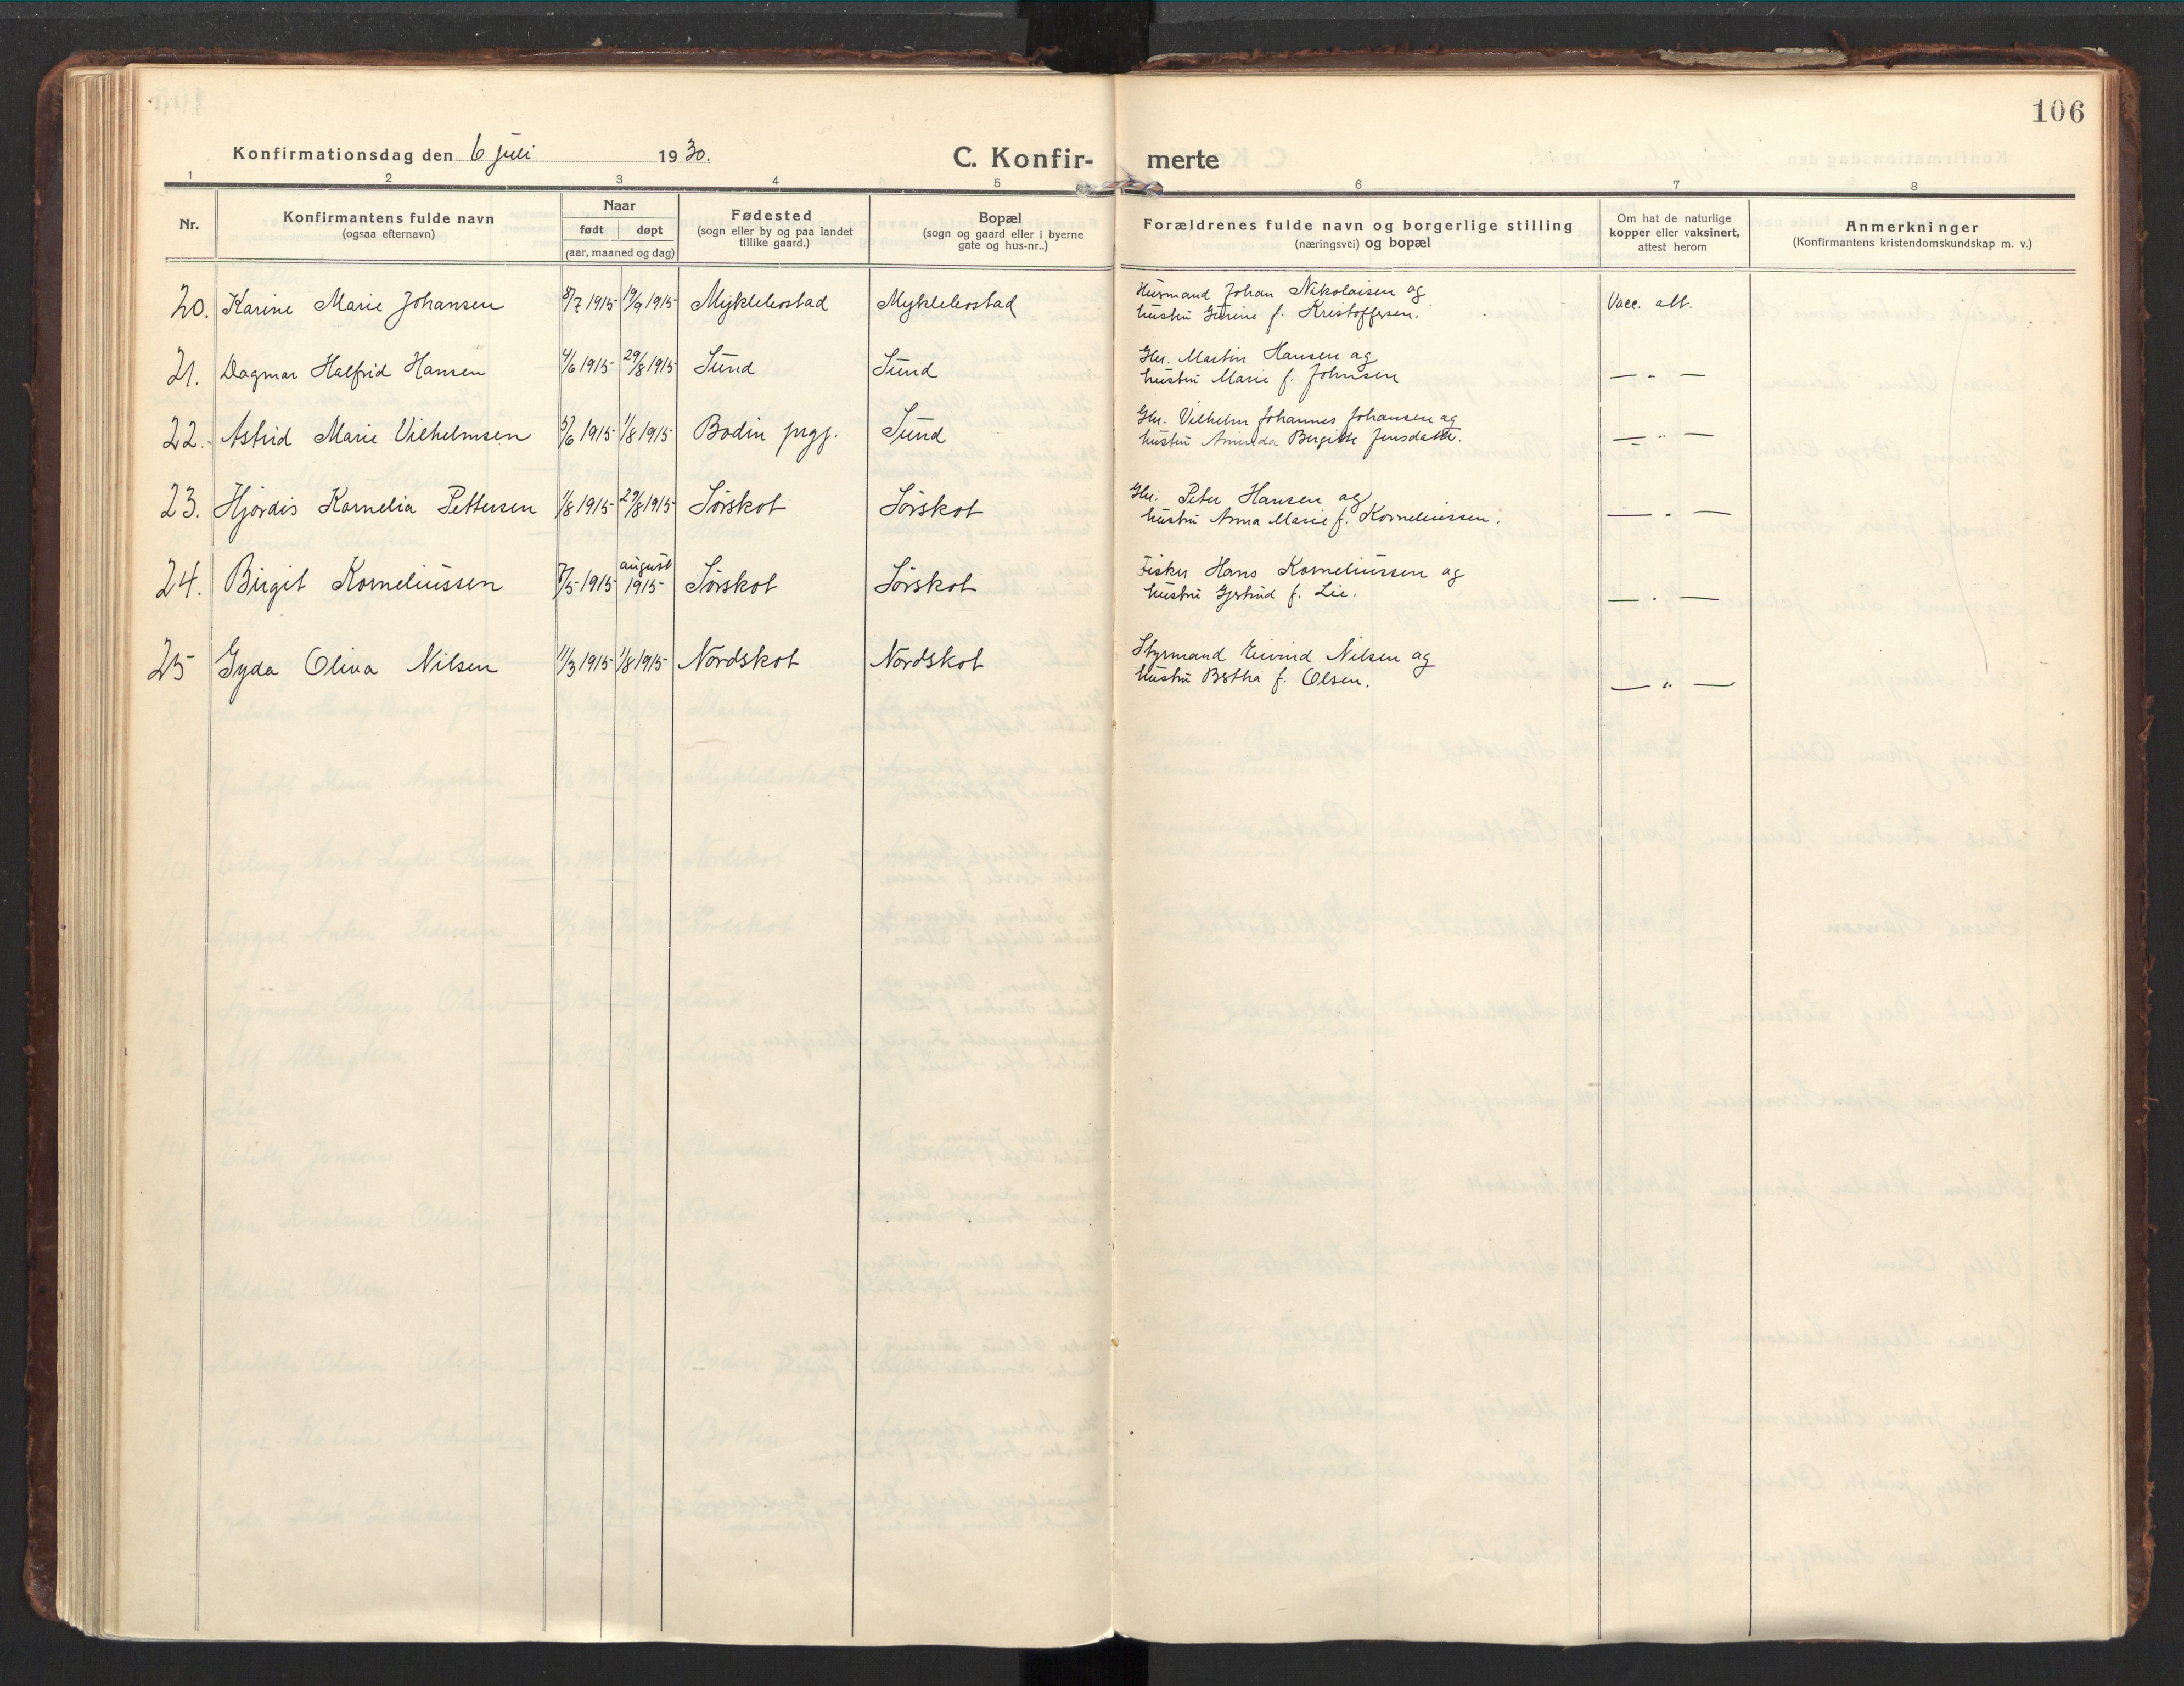 106
Konfirmationsdag den 6 juli 1930.
C. Konfir-
merte
1 2 3 4 5 6 7 8
Nr.
Konfirmantens fulde navn
(ogsaa efternavn)
Naar
født døpt
(aar, maaned og dag)
Fødested
(sogn eller by og paa landet
tillike gaard.)
Bopæl
(sogn og gaard eller i byerne
gate og hus-nr..)
Forældrenes fulde navn og borgerlige stilling
(næringsvei) og bopæl
Om hat de naturlige
kopper eller vaksinert,
attest herom
Anmerkninger
(Konfirmantens kristendomskundskap m. v.)
20. Karine Marie Johansen 8/7 1915 19/9 1915 Myklebostad Myklebostad
Husmand Johan Nikolaisen og
hustru Gurine f. Kristoffersen.
Vacc. att.
21. Dagmar Halfrid Hansen 4/6 1915 29/8 1915 Sund Sund
Gbr. Martin Hansen og
hustru Marie f. Johnsen
— " —
22. Astrid Marie Vilhelmsen 5/6 1915 1/8 1915 Bodin prgj. Sund
Gbr. Vilhelm Johannes Johansen og
hustru Aminda Bergitte Jensdatter.
— " —
23. Hjørdis Kornelia Pettersen 1/8 1915 29/8 1915 Sørskot Sørskot
Gbr. Peter Hansen og
hustru Anna Marie f. Korneliussen.
— " —
24. Birgit Korneliussen 7/5 1915 august 1915 Sørskot Sørskot
Fisker Hans Korneliussen og
hustru Gjertrud f. Lie.
— " —
25 Gyda Oliva Nilsen 11/3 1915 1/8 1915 Nordskot Nordskot
Styrmand Eivind Nilsen og
hustru Bertha f. Olsen.
— " —